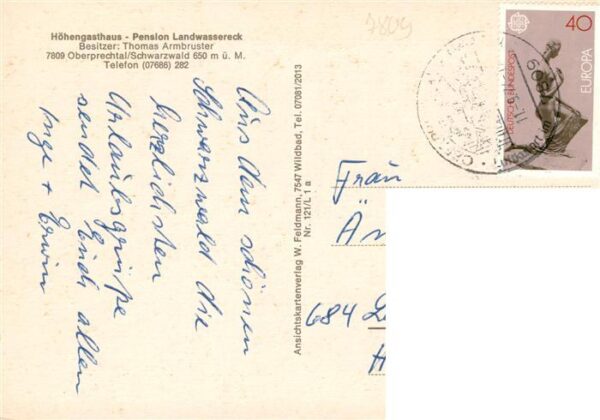 Höhengasthaus - Pension Landwassereck
Besitzer: Thomas Armbruster
7809 Oberprechtal/Schwarzwald 650 m ü. M.
Telefon (07686) 282
Aus dem schönen
Schwarzwald die
herzlichsten
Urlaubsgrüße
sendet Euch allen
Inge + Erwin
Ansichtskartenverlag W. Feldmann, 7547 Wildbad, Tel. 07081/2013
Nr. 121/L 1 a
7809
40
DEUTSCHE BUNDESPOST
EUROPA
Frau
684